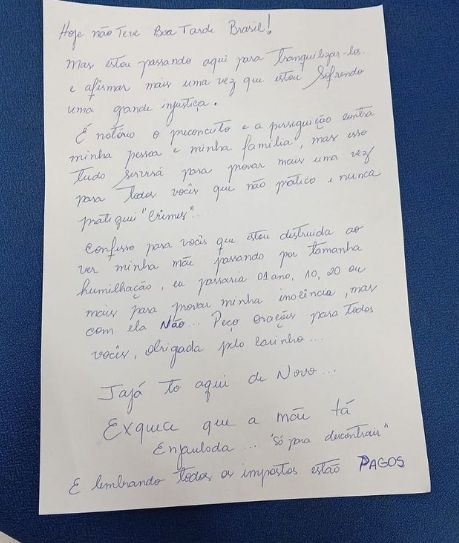 Hoje não Teve Boa Tarde Brasil!
Mas estou passando aqui para Tranquilizar-los
e afirmar mais uma vez que estou Sofrendo
uma grande injustiça.
É notório o preconceito e a perseguição contra
minha pessoa e minha família, mas isso
tudo servirá para provar mais uma vez
para todos vocês que não pratico, nunca
pratiquei "Crimes"...
Confesso para vocês que estou destruida ao
ver minha mãe passando por tamanha
humilhação, eu passaria 01 ano, 10, 20 ou
mais para provar minha inocência, mas
com ela Não... Peço orações para todos
vocês, obrigada pelo Carinho...
Jajá to aqui de Novo...
Exquece que a mãe tá
Enjaulada... "só para descontrair"
E lembrando todos os impostos estão PAGOS